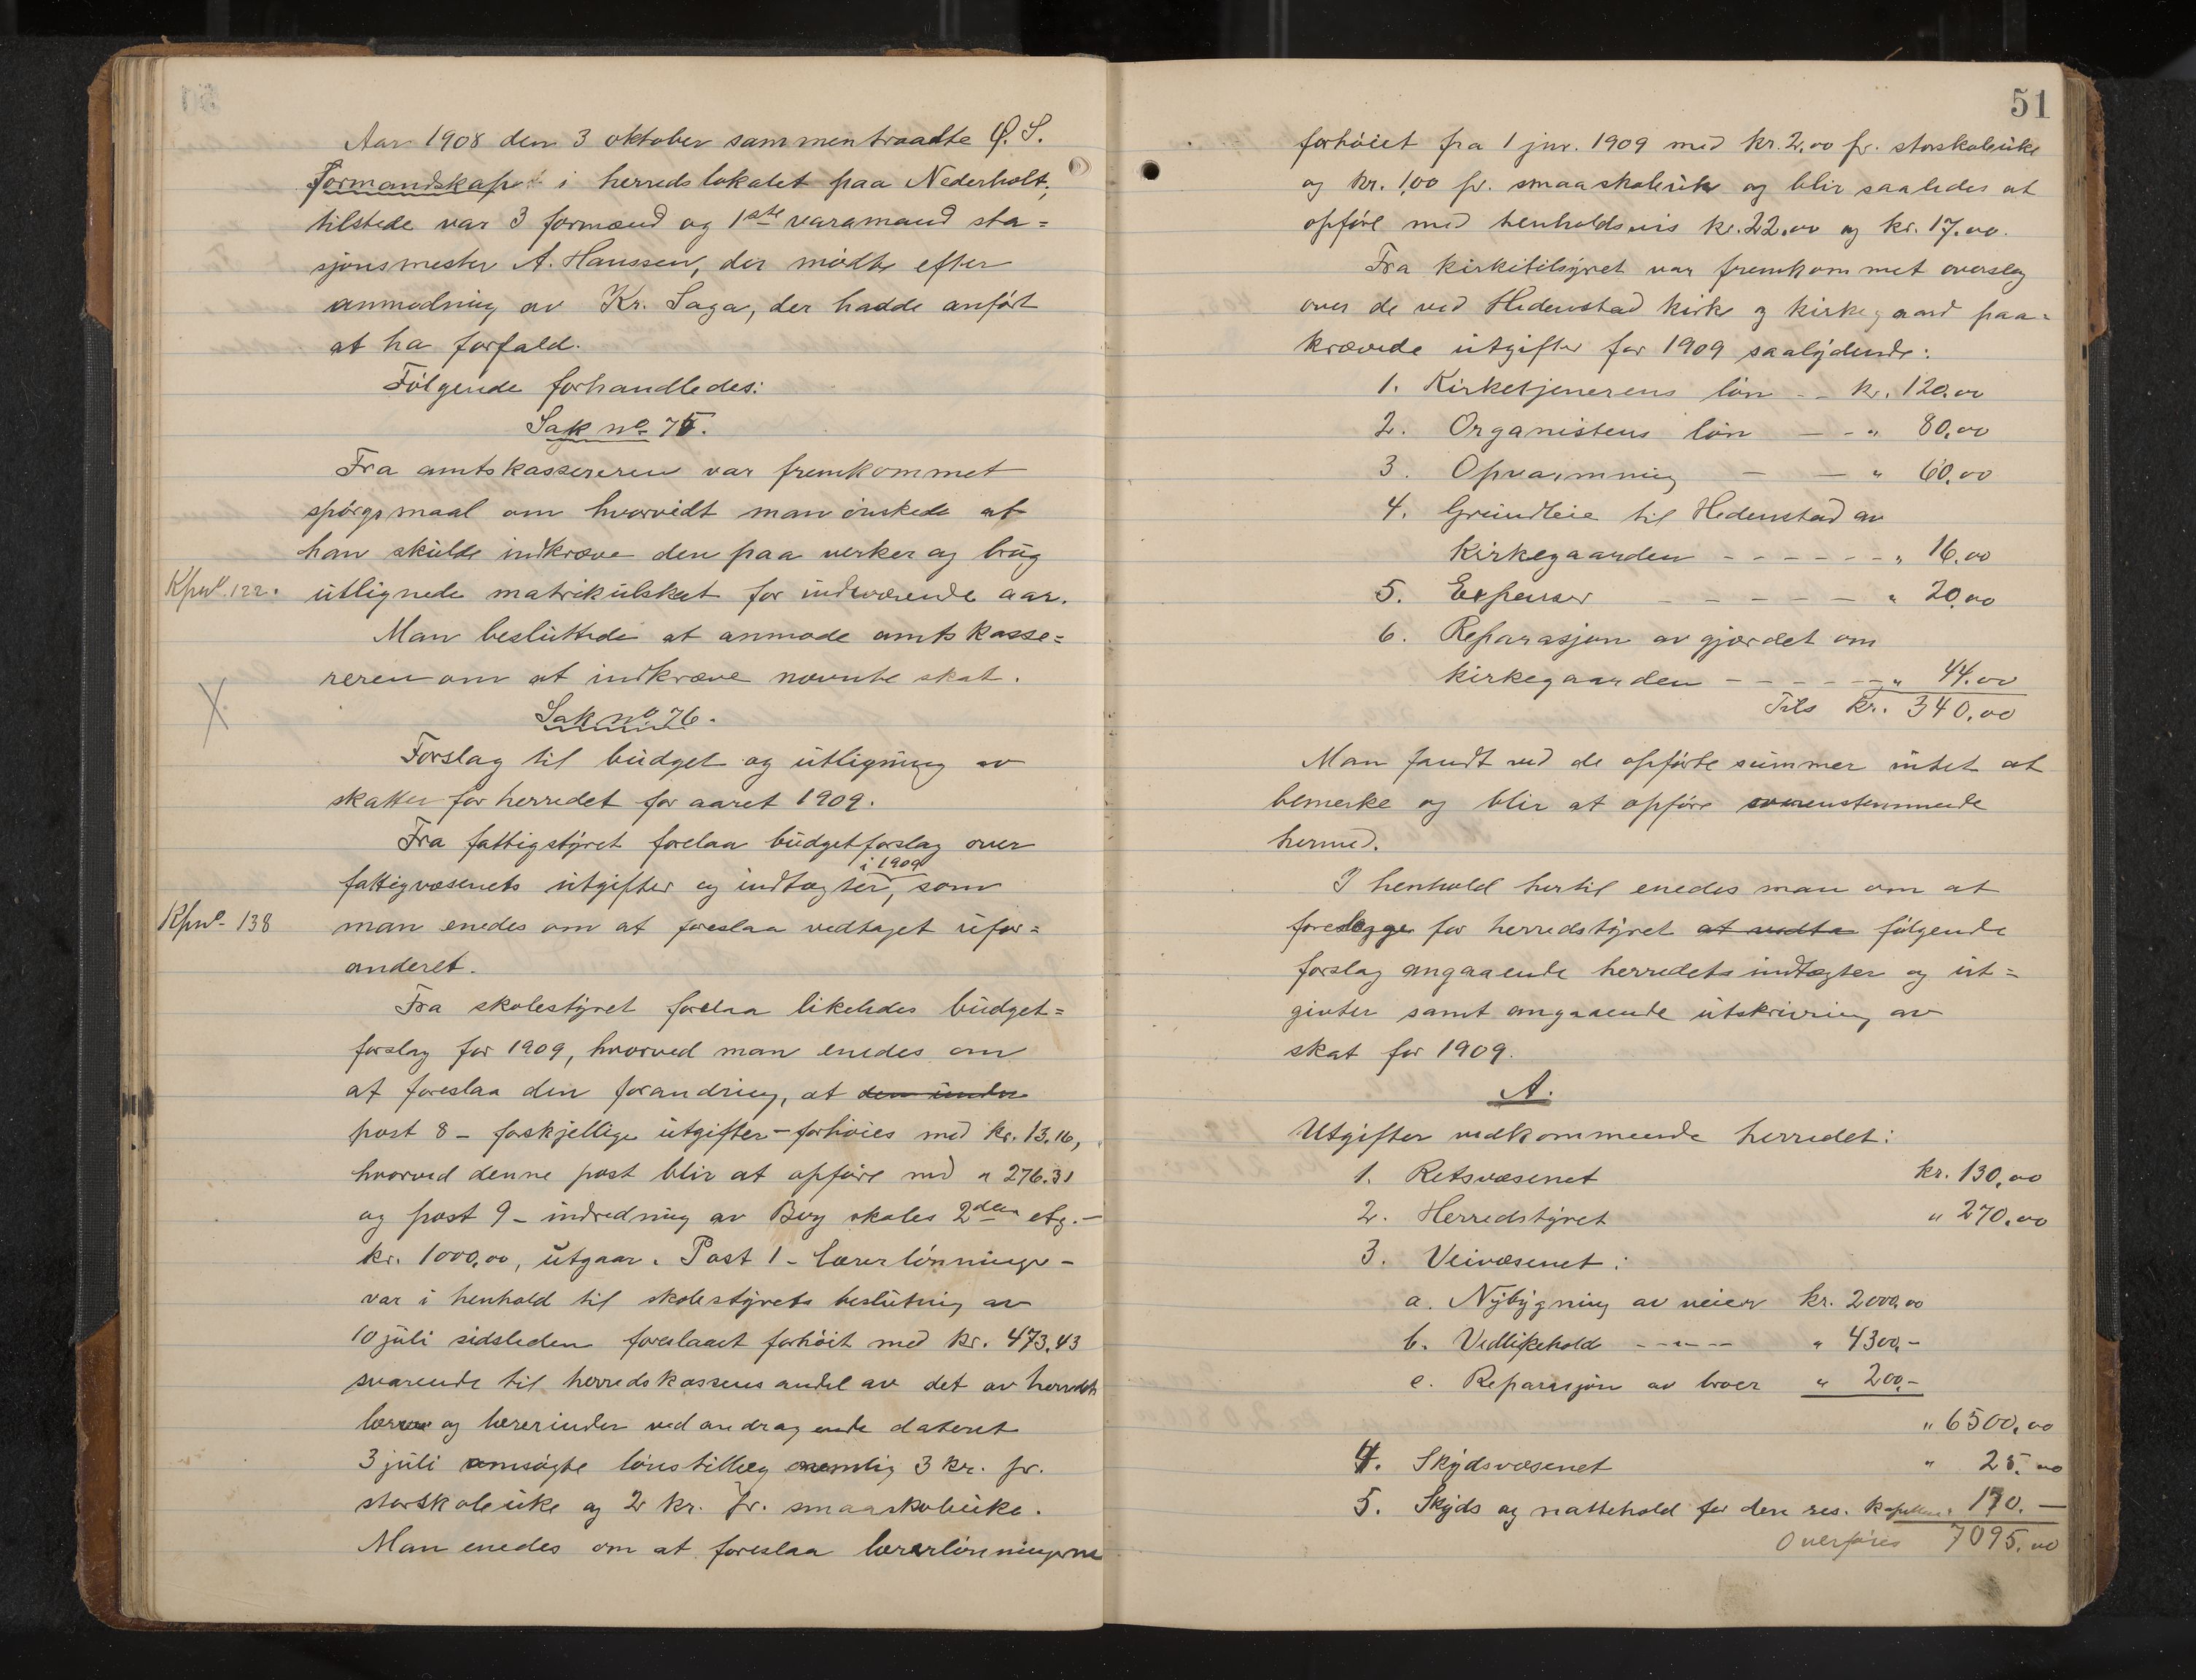 Aar 1908 den 3 oktober sammentraadte Ø. S.
Formandskap i herredslokalet paa Nederholt,
tilstede var 3 formænd og 1ste varamand sta=
sjonsmester A. Hanssen, der mødte efter
anmodning av Kr. Saga, der hadde anført
at ha forfald.
Følgende forhandledes:
Sak no 75.
Fra amtskassereren var fremkommet
spørgsmaal om hvorvidt man ønskede at
han skulde indkræve den paa verker og brug
Kpno. 122. utlignede matrikulskat for indeværende aar.
Man besluttede at anmode amtskasse=
reren om at indkræve nævnte skat.
X
Sak no 76.
Forslag til budget og utligning av
skatter for herredet for aaret 1909.
Fra fattigstyret forelaa budgetforslag over
i 1909
fattigvæsenets utgifter og indtægter, som
Kpno. 138 man enedes om at foreslaa vedtaget ufor=
andret.
Fra skolestyret forelaa likeledes budget=
forslag for 1909, hvorved man enedes om
at foreslaa den forandring, at den under
post 8 – forskjellige utgifter – forhøies med kr. 13.16,
hvorved denne post blir at opføre med " 276.31
og post 9 – indredning av Berg skoles 2den etg. –
kr. 1000,00, utgaar. Post 1 – lærerlønninge –
var i henhold til skolestyrets beslutning av
10 juli sidsleden foreslaaet forhøit med kr. 473,43
svarende til herredskassens andel av det av herredets
lærere og lærerinder ved andragende dateret
3 juli ansøgte lønstillæg nemlig 3 kr. pr.
storskoleuke og 2 kr. pr. smaaskoleuke.
Man enedes om at foreslaa lærerlønningerne
51
forhøiet fra 1 jnr. 1909 med kr. 2,00 pr. storskoleuke
og kr. 1,00 pr. smaaskoleuke og blir saaledes at
opføre med henholdsvis kr. 22.00 og kr. 17.00.
Fra kirketilsynet var fremkommet overslag
over de ved Hedenstad kirke og kirkegaard paa=
krævede utgifter for 1909 saalydende:
1. Kirketjenerens løn – – kr. 120.00
2. Organistens løn – – " 80,00
3. Opvarmning – – " 60,00
4. Grundleie til Hedenstad av
kirkegaarden – – – – – – " 16.00
5. Expenser – – – – – " 20,00
6. Reparasjon av gjærdet om
kirkegaarden – – – – – – " 44.00
Tils kr. 340,00
Man fandt ved de opførte summer intet at
bemerke og blir at opføre overensstemmende
hermed.
I henhold hertil enedes man om at
forelægge for herredstyret at vedta følgende
forslag angaaende herredets indtægter og ut=
givter samt angaaende utskrivning av
skat for 1909.
A.
Utgifter vedkommende herredet:
1. Retsvæsenet kr. 130,00
2. Herredstyret " 270,00
3. Veivæsenet:
a. Nybygning av veier kr. 2000,00
b. Vedlikehold – – " – – " 4300,–
c. Reparasjon av broer " 200,–
" 6500,00
4. Skydsvæsenet " 25,00
5. Skyds og nattehold for den res. kapellan " 170.–
Overføres 7095,00